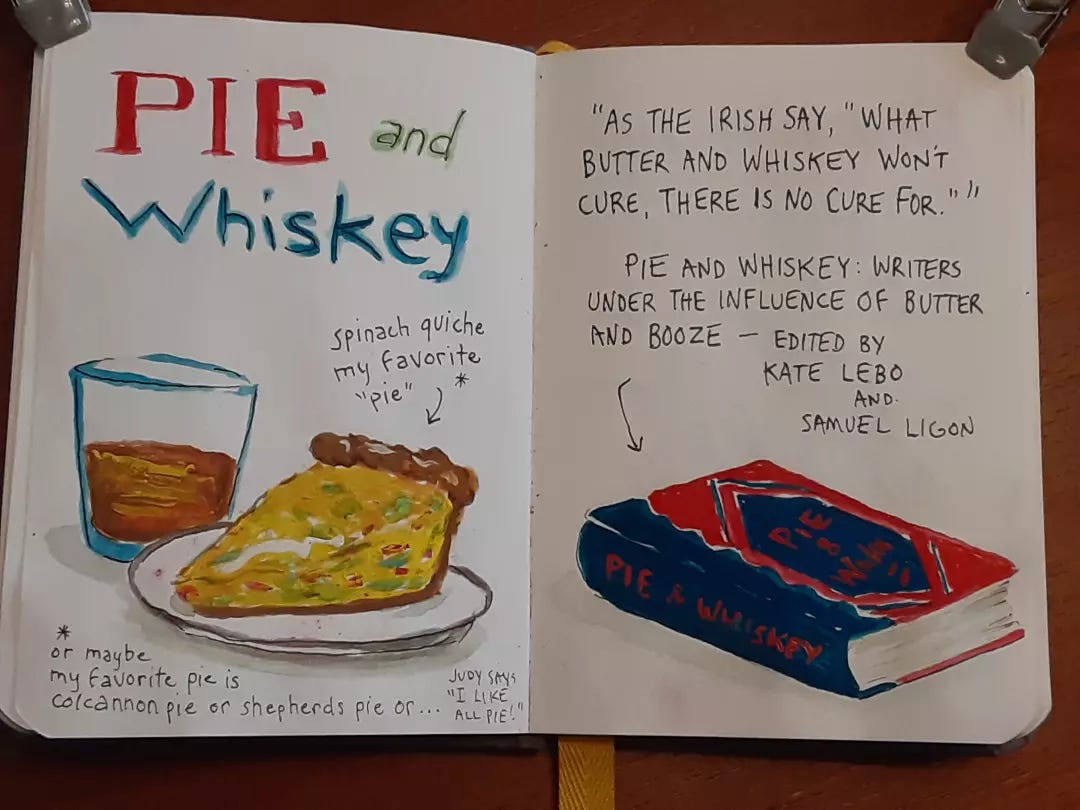 PIE and
Whiskey
spinach quiche
my favorite
"pie" *
*
or maybe
my favorite pie is
colcannon pie or shepherds pie or...
JUDY SAYS
"I LIKE
ALL PIE!"
"AS THE IRISH SAY, "WHAT
BUTTER AND WHISKEY WON'T
CURE, THERE IS NO CURE FOR.""
PIE AND WHISKEY: WRITERS
UNDER THE INFLUENCE OF BUTTER
AND BOOZE — EDITED BY
KATE LEBO
AND
SAMUEL LIGON
PIE
PIE & WHISKEY